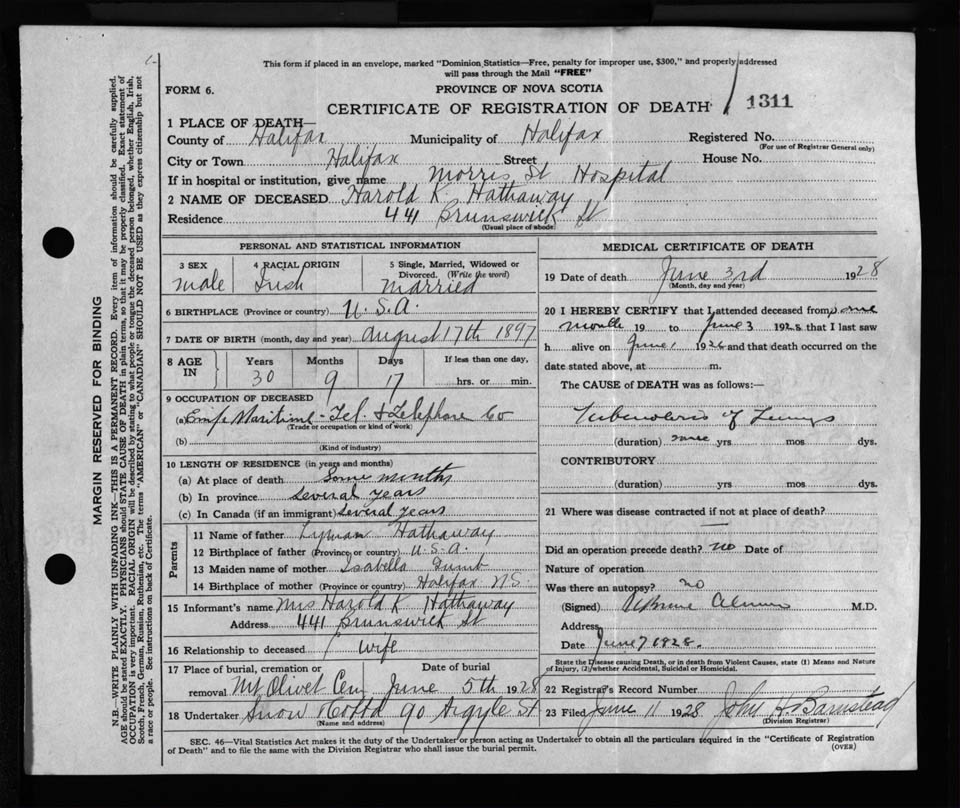 This form if placed in an envelope, marked "Dominion Statistics—Free, penalty for improper use, $300," and properly addressed
will pass through the Mail "FREE"
FORM 6.
PROVINCE OF NOVA SCOTIA
CERTIFICATE OF REGISTRATION OF DEATH 1311
1 PLACE OF DEATH—
County of Halifax Municipality of Halifax Registered No.
(For use of Registrar General only)
City or Town Halifax Street House No.
If in hospital or institution, give name Morris St Hospital
2 NAME OF DECEASED Harold K Hathaway
Residence 441 Brunswick St
(Usual place of abode)
PERSONAL AND STATISTICAL INFORMATION
3 SEX 4 RACIAL ORIGIN 5 Single, Married, Widowed or
Divorced. (Write the word)
Male Irish Married
6 BIRTHPLACE (Province or country) U.S.A.
7 DATE OF BIRTH (month, day and year) August 17th 1897
8 AGE IN Years Months Days If less than one day,
30 9 17 hrs. or min.
9 OCCUPATION OF DECEASED
(a) Maritime Tel. & Telephone Co
(Trade or occupation or kind of work)
(b)
(Kind of industry)
10 LENGTH OF RESIDENCE (in years and months)
(a) At place of death Some months
(b) In province Several years
(c) In Canada (if an immigrant) Several years
Parents
11 Name of father Lyman Hathaway
12 Birthplace of father (Province or country) U.S.A.
13 Maiden name of mother Isabella
14 Birthplace of mother (Province or country) Halifax N.S.
15 Informant's name Mrs Harold K Hathaway
Address 441 Brunswick St
16 Relationship to deceased Wife
17 Place of burial, cremation or Date of burial
removal Mt Olivet Cem June 5th 1928
18 Undertaker Snow 90 Argyle St
(Name and address)
MEDICAL CERTIFICATE OF DEATH
19 Date of death June 3rd 1928
(Month, day and year)
20 I HEREBY CERTIFY that I attended deceased from some
months 19 to June 3 1928 that I last saw
h alive on June 1 192 and that death occurred on the
date stated above, at m.
The CAUSE of DEATH was as follows:—
Tuberculosis of Lungs
(duration) yrs mos dys.
CONTRIBUTORY
(duration) yrs mos dys.
21 Where was disease contracted if not at place of death?
Did an operation precede death? no Date of
Nature of operation
Was there an autopsy? no
(Signed) M.D.
Address
Date June 7 1928.
State the Disease causing Death, or in death from Violent Causes, state (1) Means and Nature
of Injury, (2) whether Accidental, Suicidal or Homicidal.
22 Registrar's Record Number
23 Filed June 11 1928 John H. Barnstead
(Division Registrar)
SEC. 46—Vital Statistics Act makes it the duty of the Undertaker or person acting as Undertaker to obtain all the particulars required in the "Certificate of Registration
of Death" and to file the same with the Division Registrar who shall issue the burial permit.
(OVER)
MARGIN RESERVED FOR BINDING
N.B.—WRITE PLAINLY WITH UNFADING INK—THIS IS A PERMANENT RECORD. Every item of information should be carefully supplied.
AGE should be stated EXACTLY. PHYSICIANS should STATE CAUSE OF DEATH in plain terms, so that it may be properly classified. Exact statement of
OCCUPATION is very important. RACIAL ORIGIN will be described by stating to what people or tongue the deceased person belonged, whether English, Irish,
Scotch, French, German, Russian, Ruthenian, etc. The terms "AMERICAN" or "CANADIAN" SHOULD NOT BE USED as they express citizenship but not
a race or people. See instructions on back of Certificate.